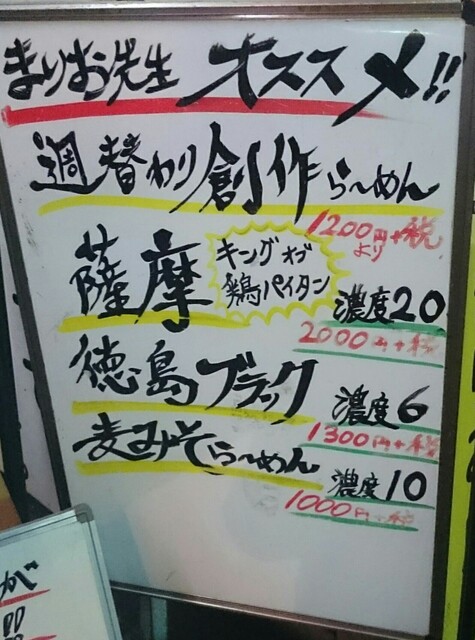 まりお先生 オススメ!!
週替わり創作らーめん
1200円+税
より
薩摩
キングオブ
鶏パイタン
濃度20
2000円+税
徳島ブラック
濃度6
1300円+税
麦みそらーめん
濃度10
1000円+税
が